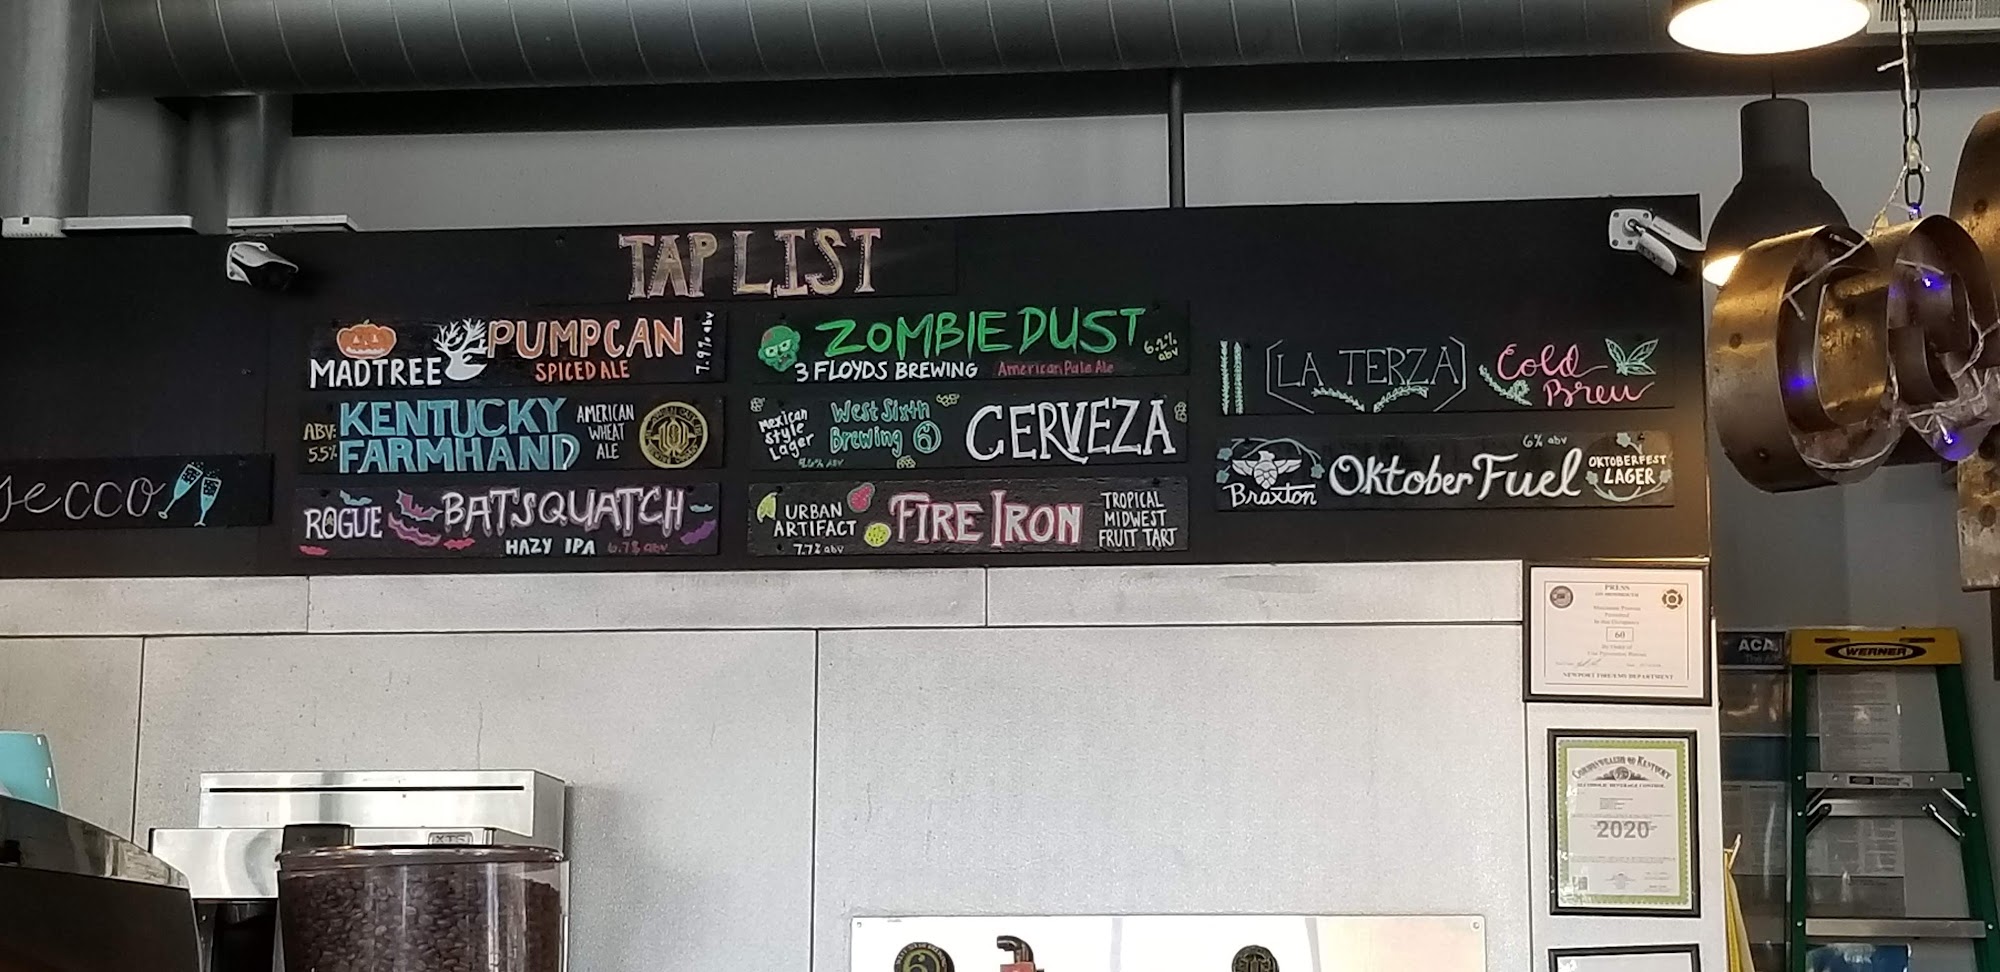 TAP LIST
MADTREE PUMPCAN
SPICED ALE
7.9% abv
ABV: 5.5%
KENTUCKY
FARMHAND
AMERICAN
WHEAT
ALE
ROGUE BATSQUATCH
HAZY IPA 6.7% abv
ZOMBIE DUST
6.2% abv
3 FLOYDS BREWING American Pale Ale
Mexican
Style
Lager
West Sixth
Brewing 6
CERVEZA
URBAN
ARTIFACT
7.7% abv
FIRE IRON
TROPICAL
MIDWEST
FRUIT TART
LA TERZA
Cold
Brew
Braxton
Oktober Fuel
6% abv
OKTOBERFEST
LAGER
secco
PRESS
60
NEWPORT FIRE/EMS DEPARTMENT
COMMONWEALTH OF KENTUCKY
ALCOHOLIC BEVERAGE CONTROL
2020
WERNER
XTS
6